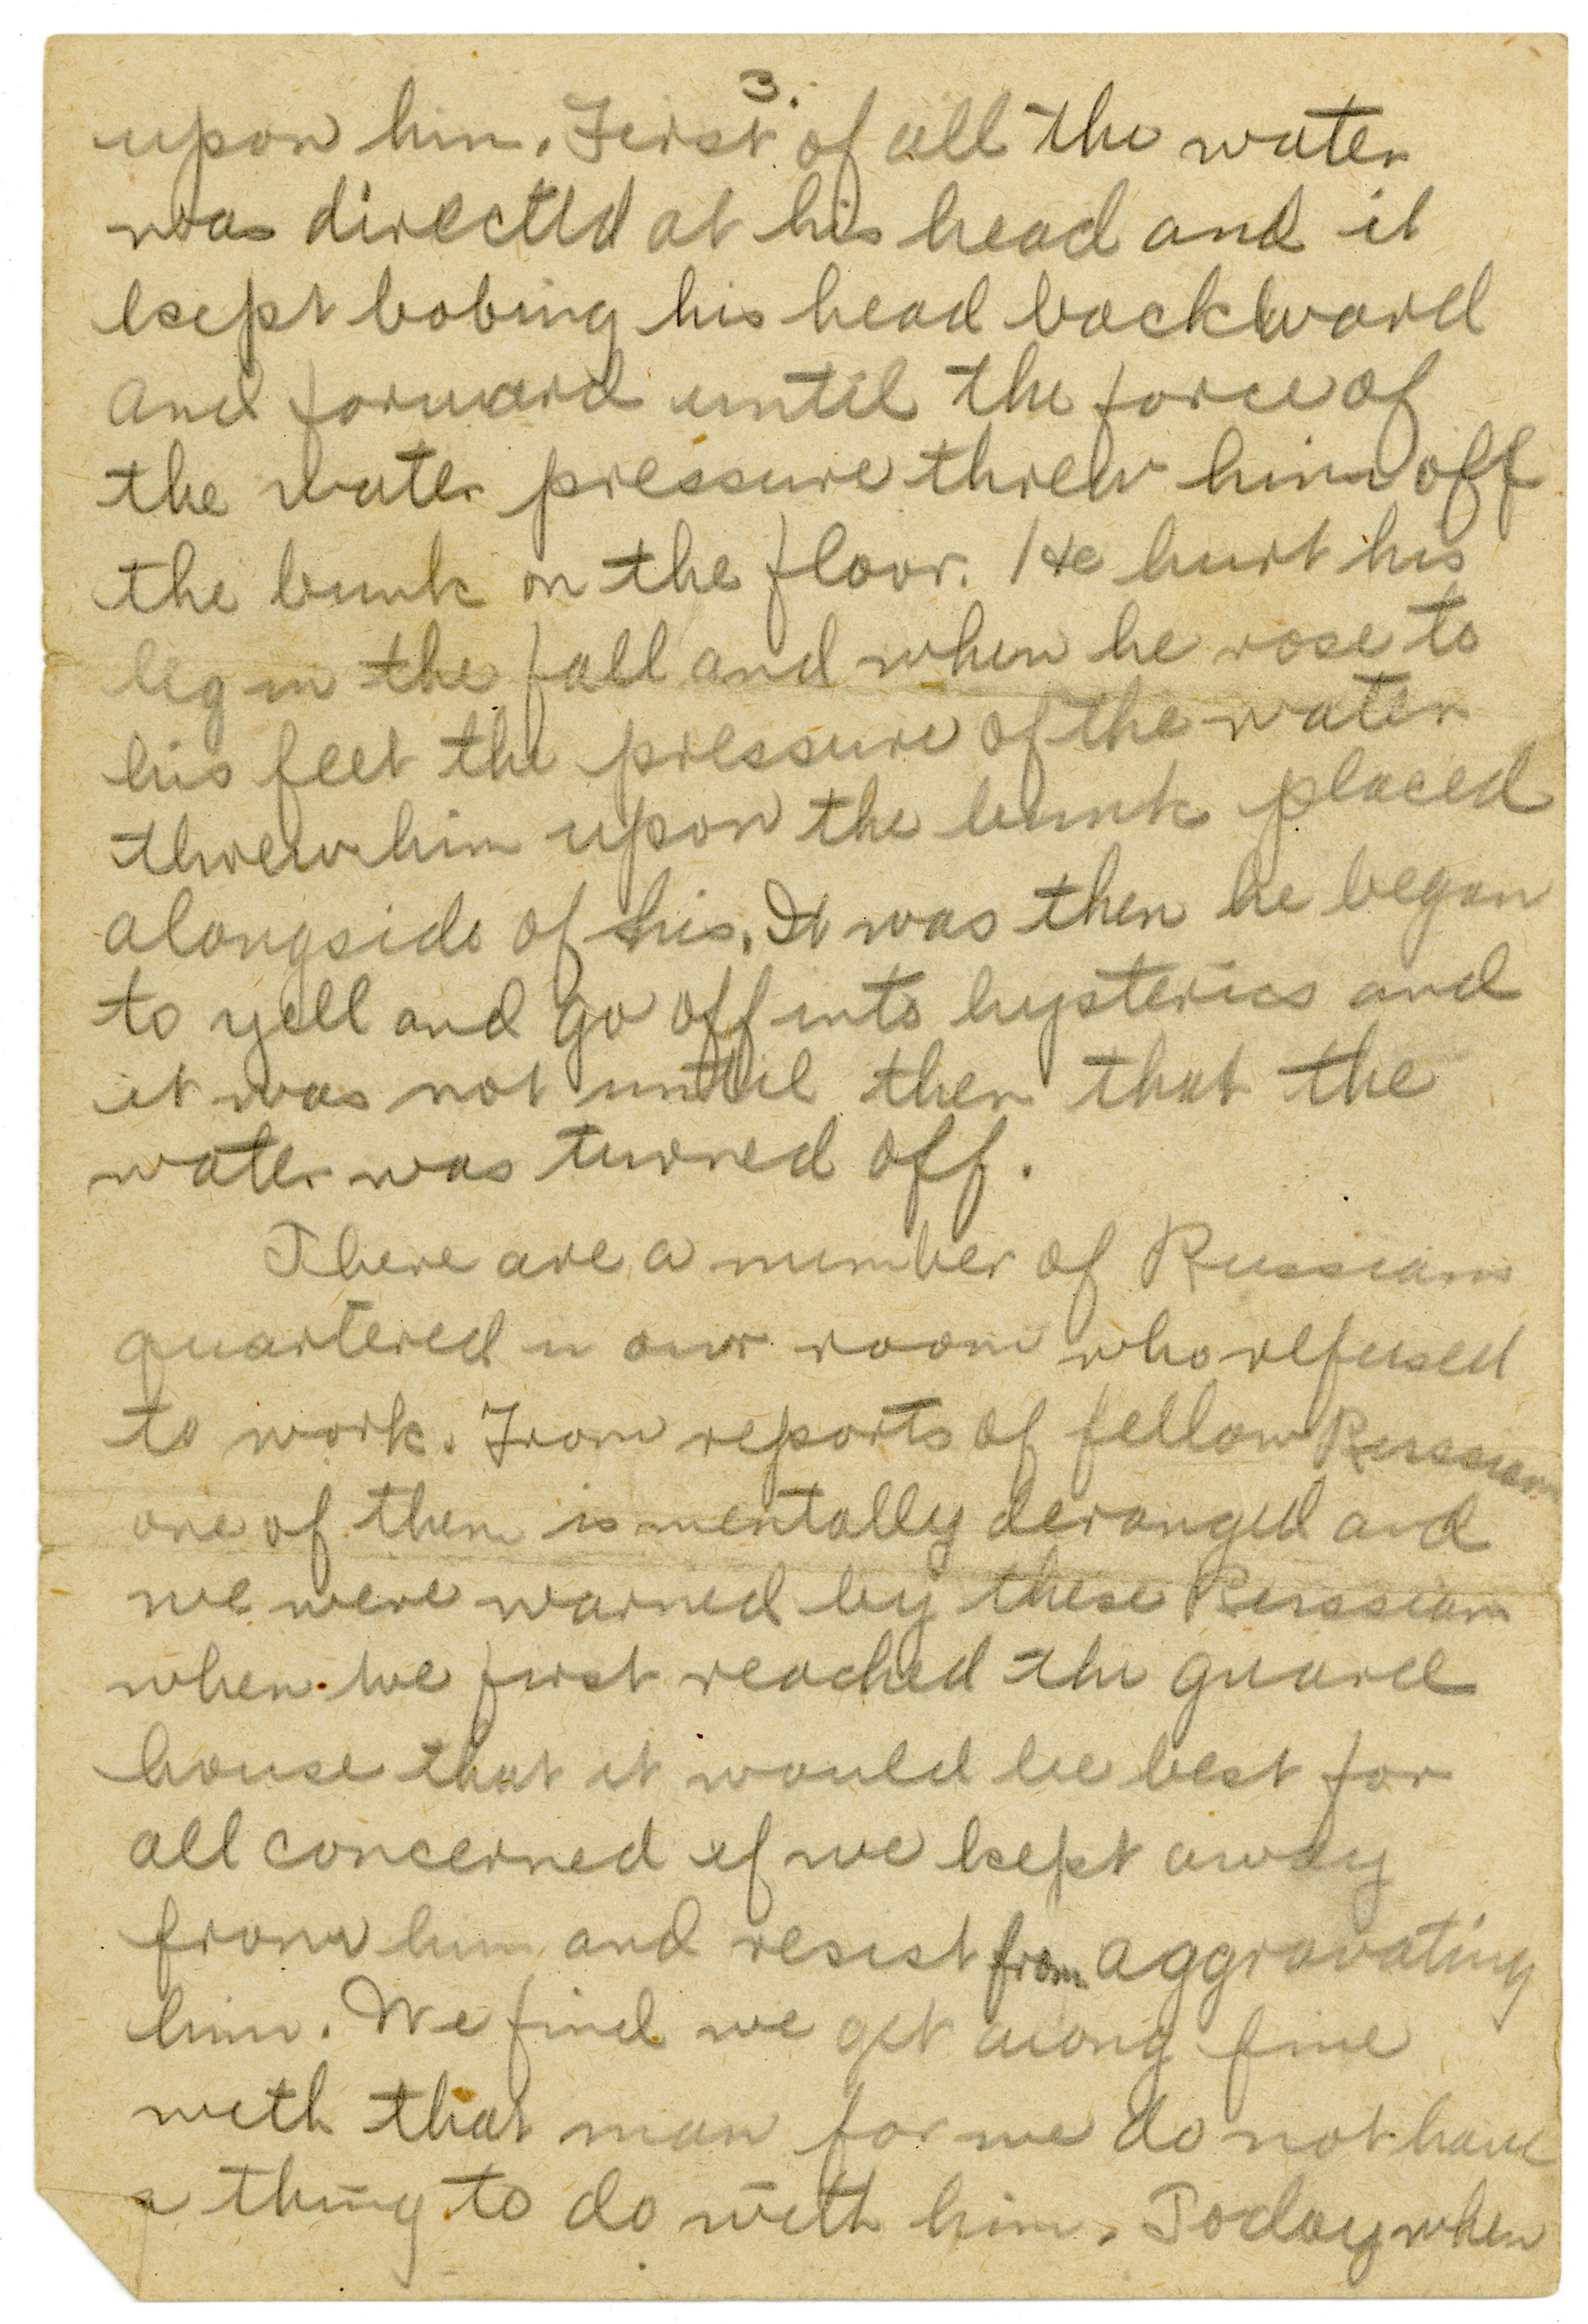 3.
upon him. First of all the water
was directed at his head and it
kept bobing his head backward
and forward until the force of
the water pressure threw him off
the bunk on the floor. He hurt his
leg in the fall and when he rose to
his feet the pressure of the water
threw him upon the bunk placed
alongside of his. It was then he began
to yell and go off into hysterics and
it was not until then that the
water was turned off.
There are a number of Russians
quartered in our room who refused
to work. From reports of fellow Russians
one of them is mentally deranged and
we were warned by these Russians
when we first reached the guard
house that it would be best for
all concerned if we kept away
from him and resist from aggravating
him. We find we get along fine
with that man for we do not have
a thing to do with him. Today when